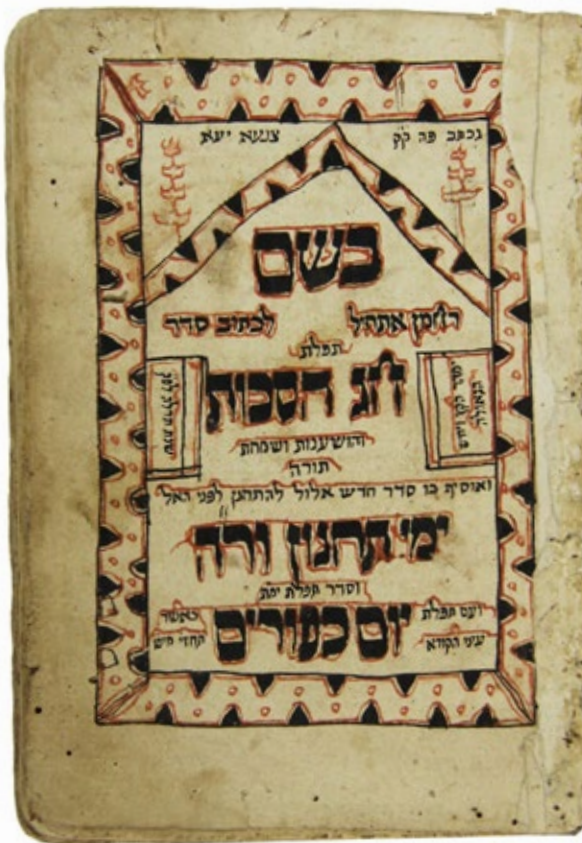 נכתב פה קק צנעא יעא
בשם
רחמן אתחיל לכתוב סדר
תפלת
חג הסכות
והושענות ושמחת
תורה
ואוסיף בו סדר חדש אלול להתחנן לפני האל
ימי תחנון ורה
וסדר תפלת
ועם תפלת יום כפורים כאשר
עיני הקורא תחזי